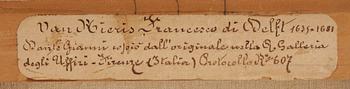 Van Mieris Francesco di Delft 1635-1681
Dante Gianni copiò dall'originale nella R. Galleria
degli Uffizi - Firenze (Italia) Protocollo No 607